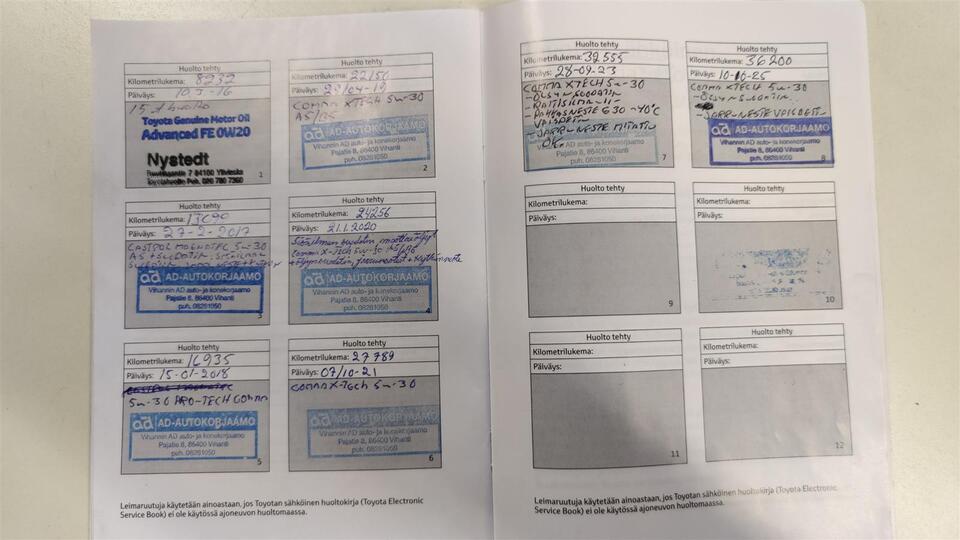 Huolto tehty
Kilometrilukema: 8232
Päiväys: 10.3.-16
15 t huolto
Toyota Genuine Motor Oil
Advanced FE 0W20
Nystedt
7 84100 Ylivieska
1
Huolto tehty
Kilometrilukema: 22156
Päiväys: 29/04-19
COMMA XTECH 5W-30
A5/B5
AD-AUTOKORJAAMO
Vihannin AD auto- ja konekorjaamo
Pajatie 8, 86400 Vihanti
puh. 08281050
2
Huolto tehty
Kilometrilukema: 13690
Päiväys: 27-2-2017
CASTROL MAGNATEC 5W-30
A5 + SUODATIN
AD-AUTOKORJAAMO
Vihannin AD auto- ja konekorjaamo
Pajatie 8, 86400 Vihanti
puh. 08281050
3
Huolto tehty
Kilometrilukema: 24256
Päiväys: 21.1.2020
Comma X-Tech 5W-30 A5/B5
AD-AUTOKORJAAMO
Vihannin AD auto- ja konekorjaamo
Pajatie 8, 86400 Vihanti
puh. 08281050
4
Huolto tehty
Kilometrilukema: 16935
Päiväys: 15-01-2018
5W-30 PRO-TECH COMMA
AD-AUTOKORJAAMO
Vihannin AD auto- ja konekorjaamo
Pajatie 8, 86400 Vihanti
puh. 08281050
5
Huolto tehty
Kilometrilukema: 27789
Päiväys: 07/10-21
COMMA X-TECH 5W-30
AD-AUTOKORJAAMO
Vihannin AD auto- ja konekorjaamo
Pajatie 8, 86400 Vihanti
puh. 08281050
6
Leimaruutuja käytetään ainoastaan, jos Toyotan sähköinen huoltokirja (Toyota Electronic
Service Book) ei ole käytössä ajoneuvon huoltomaassa.
Huolto tehty
Kilometrilukema: 32555
Päiväys: 28-09-23
COMMA XTECH 5W-30
- ÖLJYNSUODATIN
- RAITISILMA -11-
- PAKKASNESTE G30 -40°C
VAIHDETTU
- JARRU-NESTE MITATTU
OK
AD auto- ja konekorjaamo
Pajatie 8, 86400 Vihanti
7
Huolto tehty
Kilometrilukema: 36200
Päiväys: 10-10-25
COMMA XTECH 5W-30
- ÖLJYNSUODATIN
- JARRU-NESTE VAIHDETTU
AD-AUTOKORJAAMO
Vihannin AD auto- ja konekorjaamo
Pajatie 8, 86400 Vihanti
puh. 08281050
8
Huolto tehty
Kilometrilukema:
Päiväys:
9
Huolto tehty
Kilometrilukema:
Päiväys:
10
Huolto tehty
Kilometrilukema:
Päiväys:
11
Huolto tehty
Kilometrilukema:
Päiväys:
12
Leimaruutuja käytetään ainoastaan, jos Toyotan sähköinen huoltokirja (Toyota Electronic
Service Book) ei ole käytössä ajoneuvon huoltomaassa.